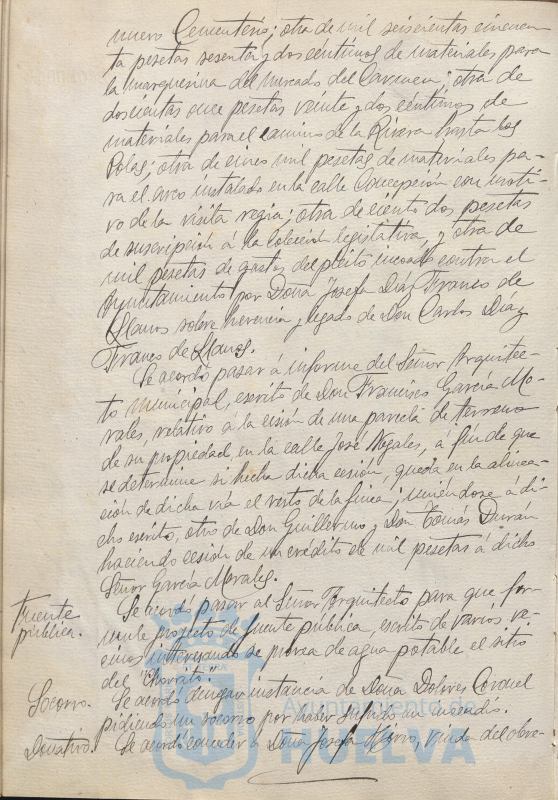 nuevo Cementerio; otra de mil seiscientas cincuen-
ta pesetas sesenta y dos centimos de materiales para
la marquesina del mercado del Carmen; otra de
doscientas once pesetas veinte y dos centimos de
materiales para el camino de la Rivera hasta los
Polos; otra de cinco mil pesetas de materiales pa-
ra el arco instalado en la calle Concepción con moti-
vo de la visita regia; otra de ciento dos pesetas
de suscripción á la Colección legislativa, y otra de
mil pesetas de gastos del pleito incoado contra el
Ayuntamiento por Doña Josefa Diaz Franco de
Llanos sobre herencia y legado de Don Carlos Diaz
Franco de Llanos.
Se acordó pasar á informe del Señor Arquitec-
to municipal, escrito de Don Francisco García Mo-
rales, relativo á la cesión de una parcela de terreno
de su propiedad, en la calle José Nogales, a fin de que
se determine si hecha dicha cesión, queda en la alinea-
ción de dicha vía el resto de la finca; uniéndose á di-
cho escrito, otro de Don Guillermo y Don Tomás Duran
haciendo cesión de un crédito de mil pesetas á dicho
Señor García Morales.
Fuente pública.
Se acordó pasar al Señor Arquitecto para que for-
mule proyecto de fuente pública, escrito de varios ve-
cinos interesando se provea de agua potable el sitio
del "Chorrito".
Socorro.
Se acordó denegar instancia de Doña Dolores Coronel
pidiendo un socorro por haber sufrido un incendio.
Donativo.
Se acordó conceder a Doña Josefa viuda del obre-
Ayuntamiento de
HUELVA